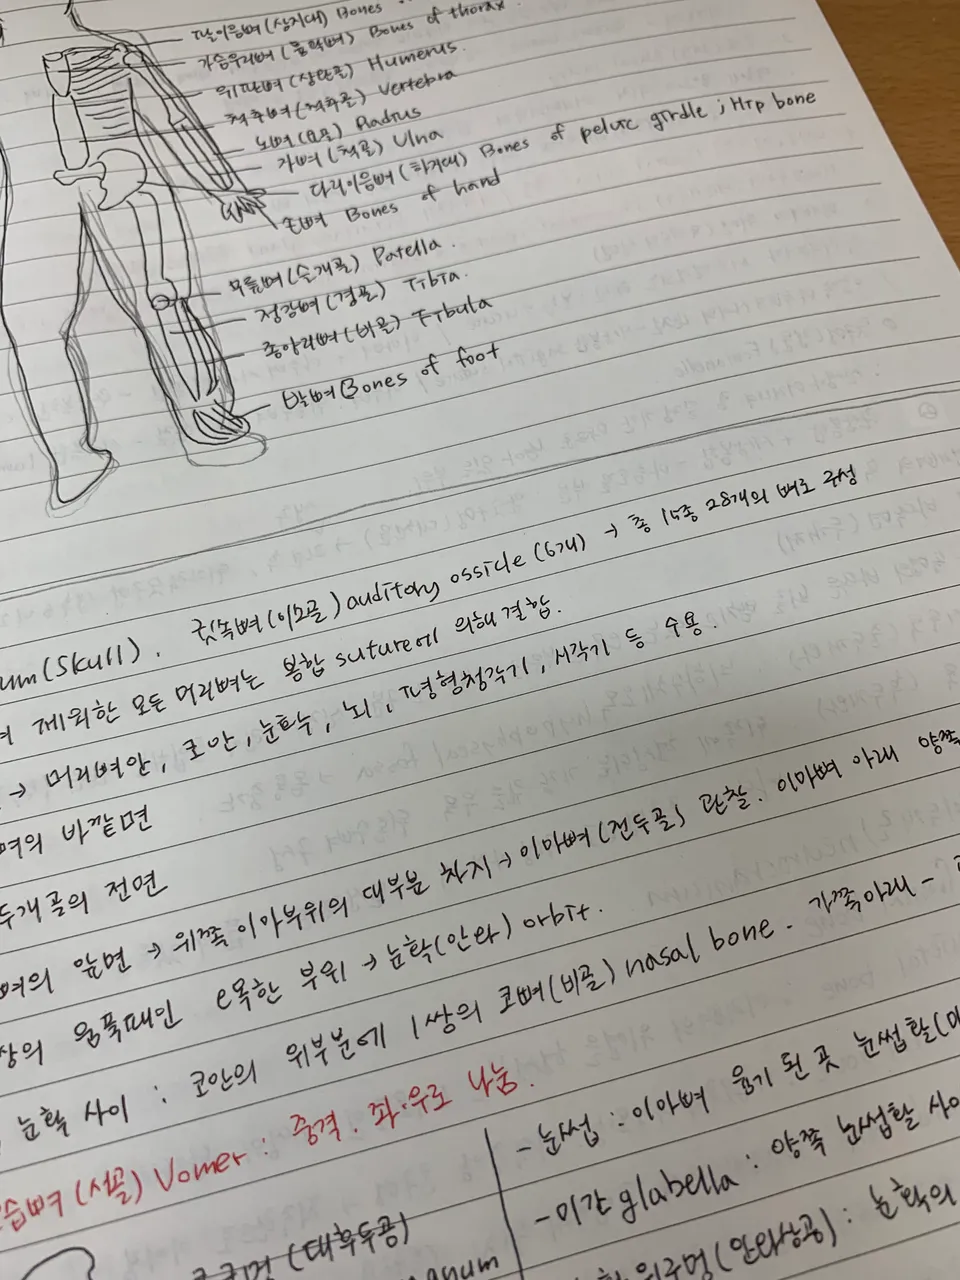 팔이음뼈(상지대) Bones
가슴우리뼈(흉곽뼈) Bones of thorax.
위팔뼈(상완골) Humerus.
척추뼈(척추골) Vertebra
노뼈(요골) Radius
자뼈(척골) Ulna
다리이음뼈(하지대) Bones of pelvic girdle ; Hip bone
손뼈 Bones of hand
무릎뼈(슬개골) Patella.
정강뼈(경골) Tibia.
종아리뼈(비골) Fibula
발뼈 Bones of foot
um(skull). 귓속뼈(이소골) auditory ossicle(6개) → 총 15종 28개의 뼈로 구성
제외한 모든 머리뼈는 봉합 suture에 의해 결합.
→ 머리뼈안, 코안, 눈확, 뇌, 평형청각기, 시각기 등 수용.
뼈의 바깥면
두개골의 전면
뼈의 앞면 → 위쪽 이마부위의 대부분 차지 → 이마뼈(전두골) 관찰. 이마뼈 아래 양쪽
쌍의 움푹패인 오목한 부위 → 눈확(안와) orbit.
눈확 사이 : 코안의 위부분에 1쌍의 코뼈(비골) nasal bone. 가쪽아래 -
습뼈(서골) Vomer : 중격. 좌·우로 나눔.
- 눈썹 : 이마뼈 융기 된 곳 눈썹활(
- 미간 glabella : 양쪽 눈썹활 사이
(대후두공)
위구멍(안와상공) : 눈확의